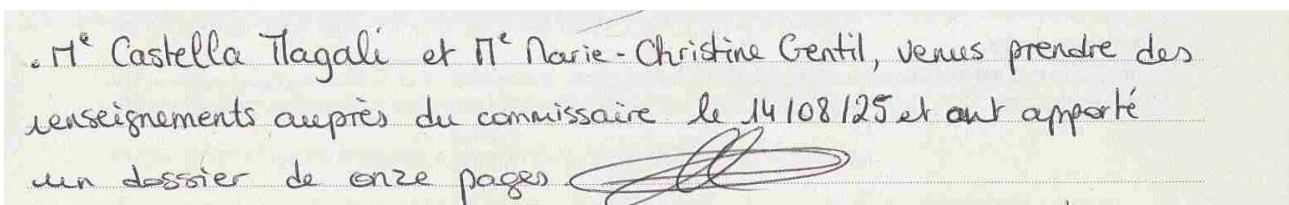 . Me Castella Magali et Me Marie-Christine Gentil, venues prendre des
renseignements auprès du commissaire le 14/08/25 et ont apporté
un dossier de onze pages